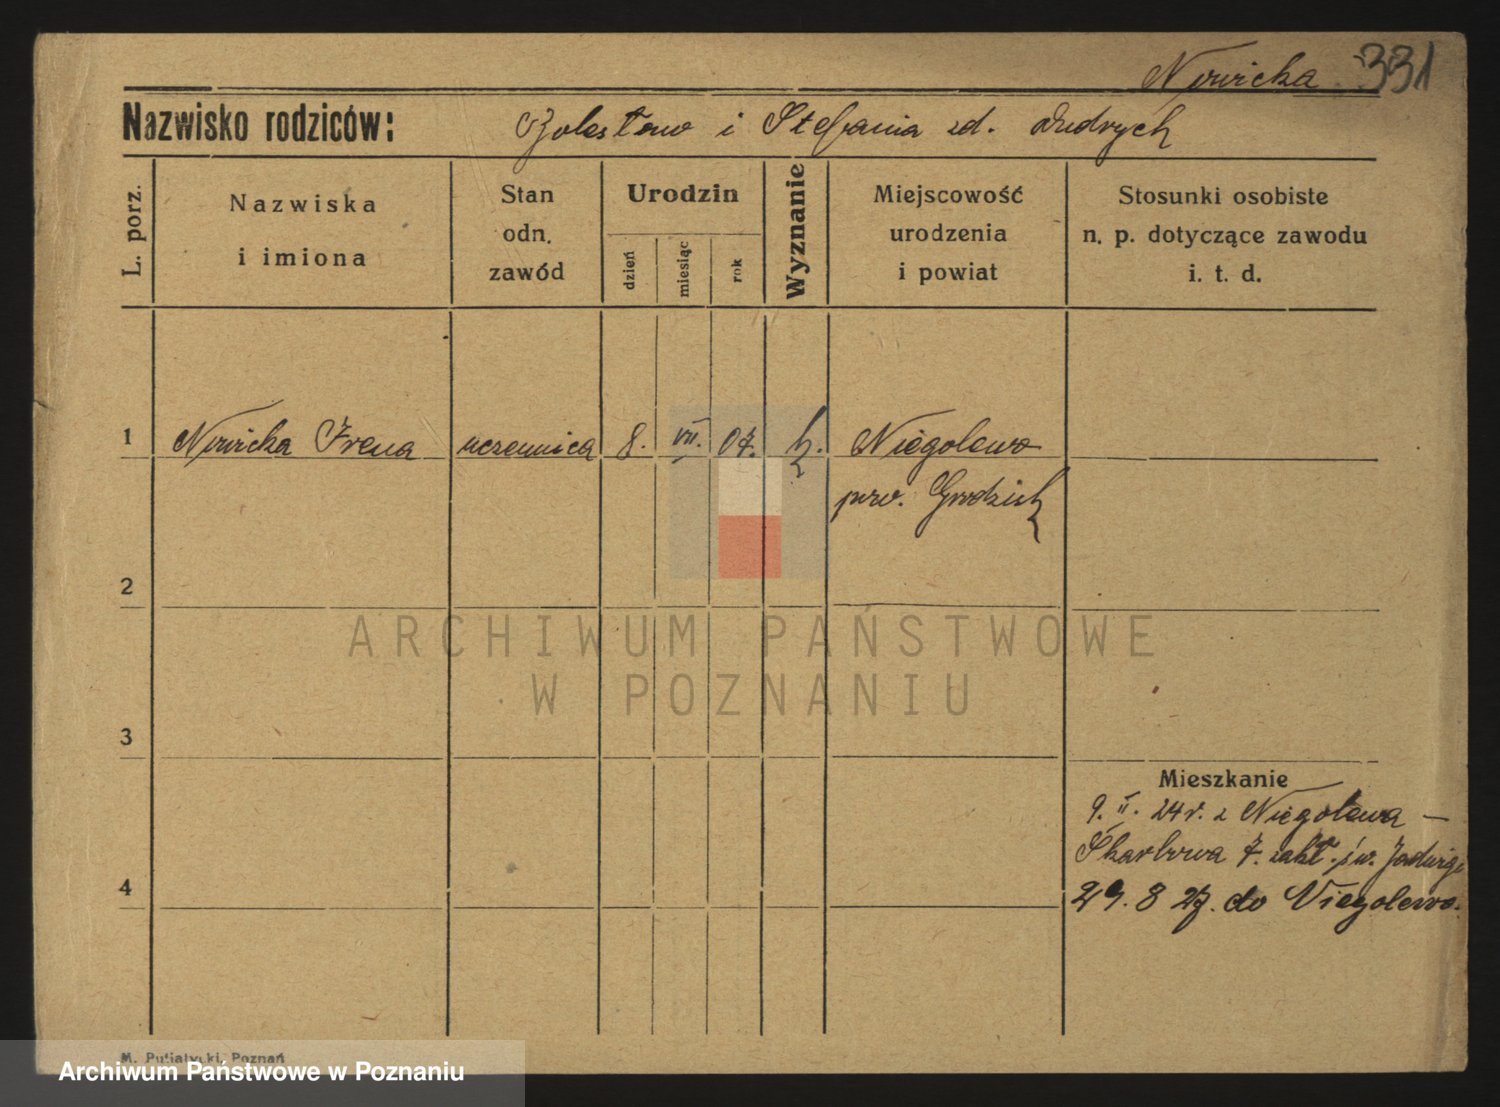 Nowicka 331
Nazwisko rodziców: Bolesław i Stefania zd. Dudrych
L. porz.
Nazwiska
i imiona
Stan
odn.
zawód
Urodzin
dzień
miesiąc
rok
Wyznanie
Miejscowość
urodzenia
i powiat
Stosunki osobiste
n. p. dotyczące zawodu
i. t. d.
1 Nowicka Irena uczennica 8. VII. 07. k. Niegolewo
pow. Grodzisk
2
ARCHIWUM PAŃSTWOWE
W POZNANIU
3
Mieszkanie
9. II. 24 r. z Niegolewa —
Skarbowa 7. zakł. św. Jadwigi
4
29. 8 27. do Niegolewa.
M. Putiatycki, Poznań
Archiwum Państwowe w Poznaniu